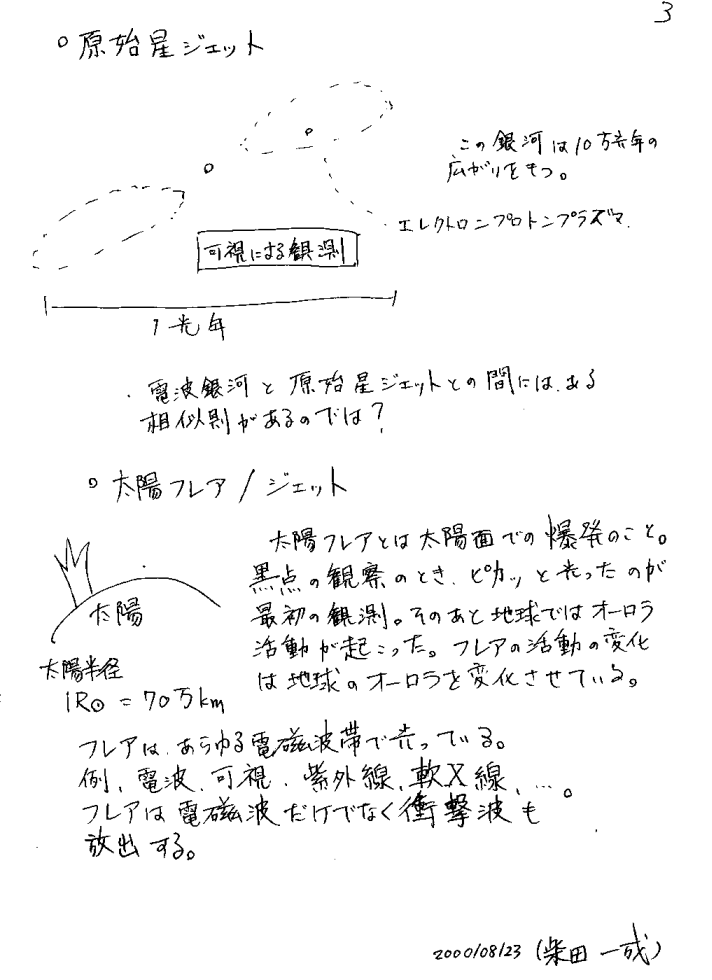 3
○ 原始星ジェット
この銀河は10万光年の
広がりをもつ。
エレクトロンプロトンプラズマ.
可視による観測
1光年
・電波銀河と原始星ジェットとの間には、ある
相似則があるのでは?
○ 太陽フレア / ジェット
太陽
太陽半径
1R⊙ = 70万km
太陽フレアとは太陽面での爆発のこと。
黒点の観察のとき、ピカッと光ったのが
最初の観測。そのあと地球ではオーロラ
活動が起こった。フレアの活動の変化
は地球のオーロラを変化させている。
フレアは、あらゆる電磁波帯で光っている。
例、電波、可視、紫外線、軟X線、…。
フレアは電磁波だけでなく衝撃波も
放出する。
2000/08/23 (柴田 一成)